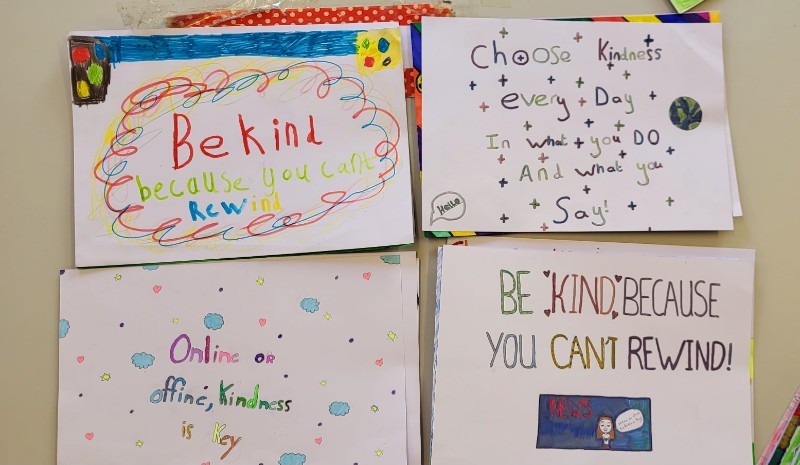 Be kind
because you cant
Rewind
Choose Kindness
every Day
In what you DO
And what you
Say!
Hello
Online or
offine, Kindness
is Key
BE KIND BECAUSE
YOU CAN'T REWIND!
NEWS